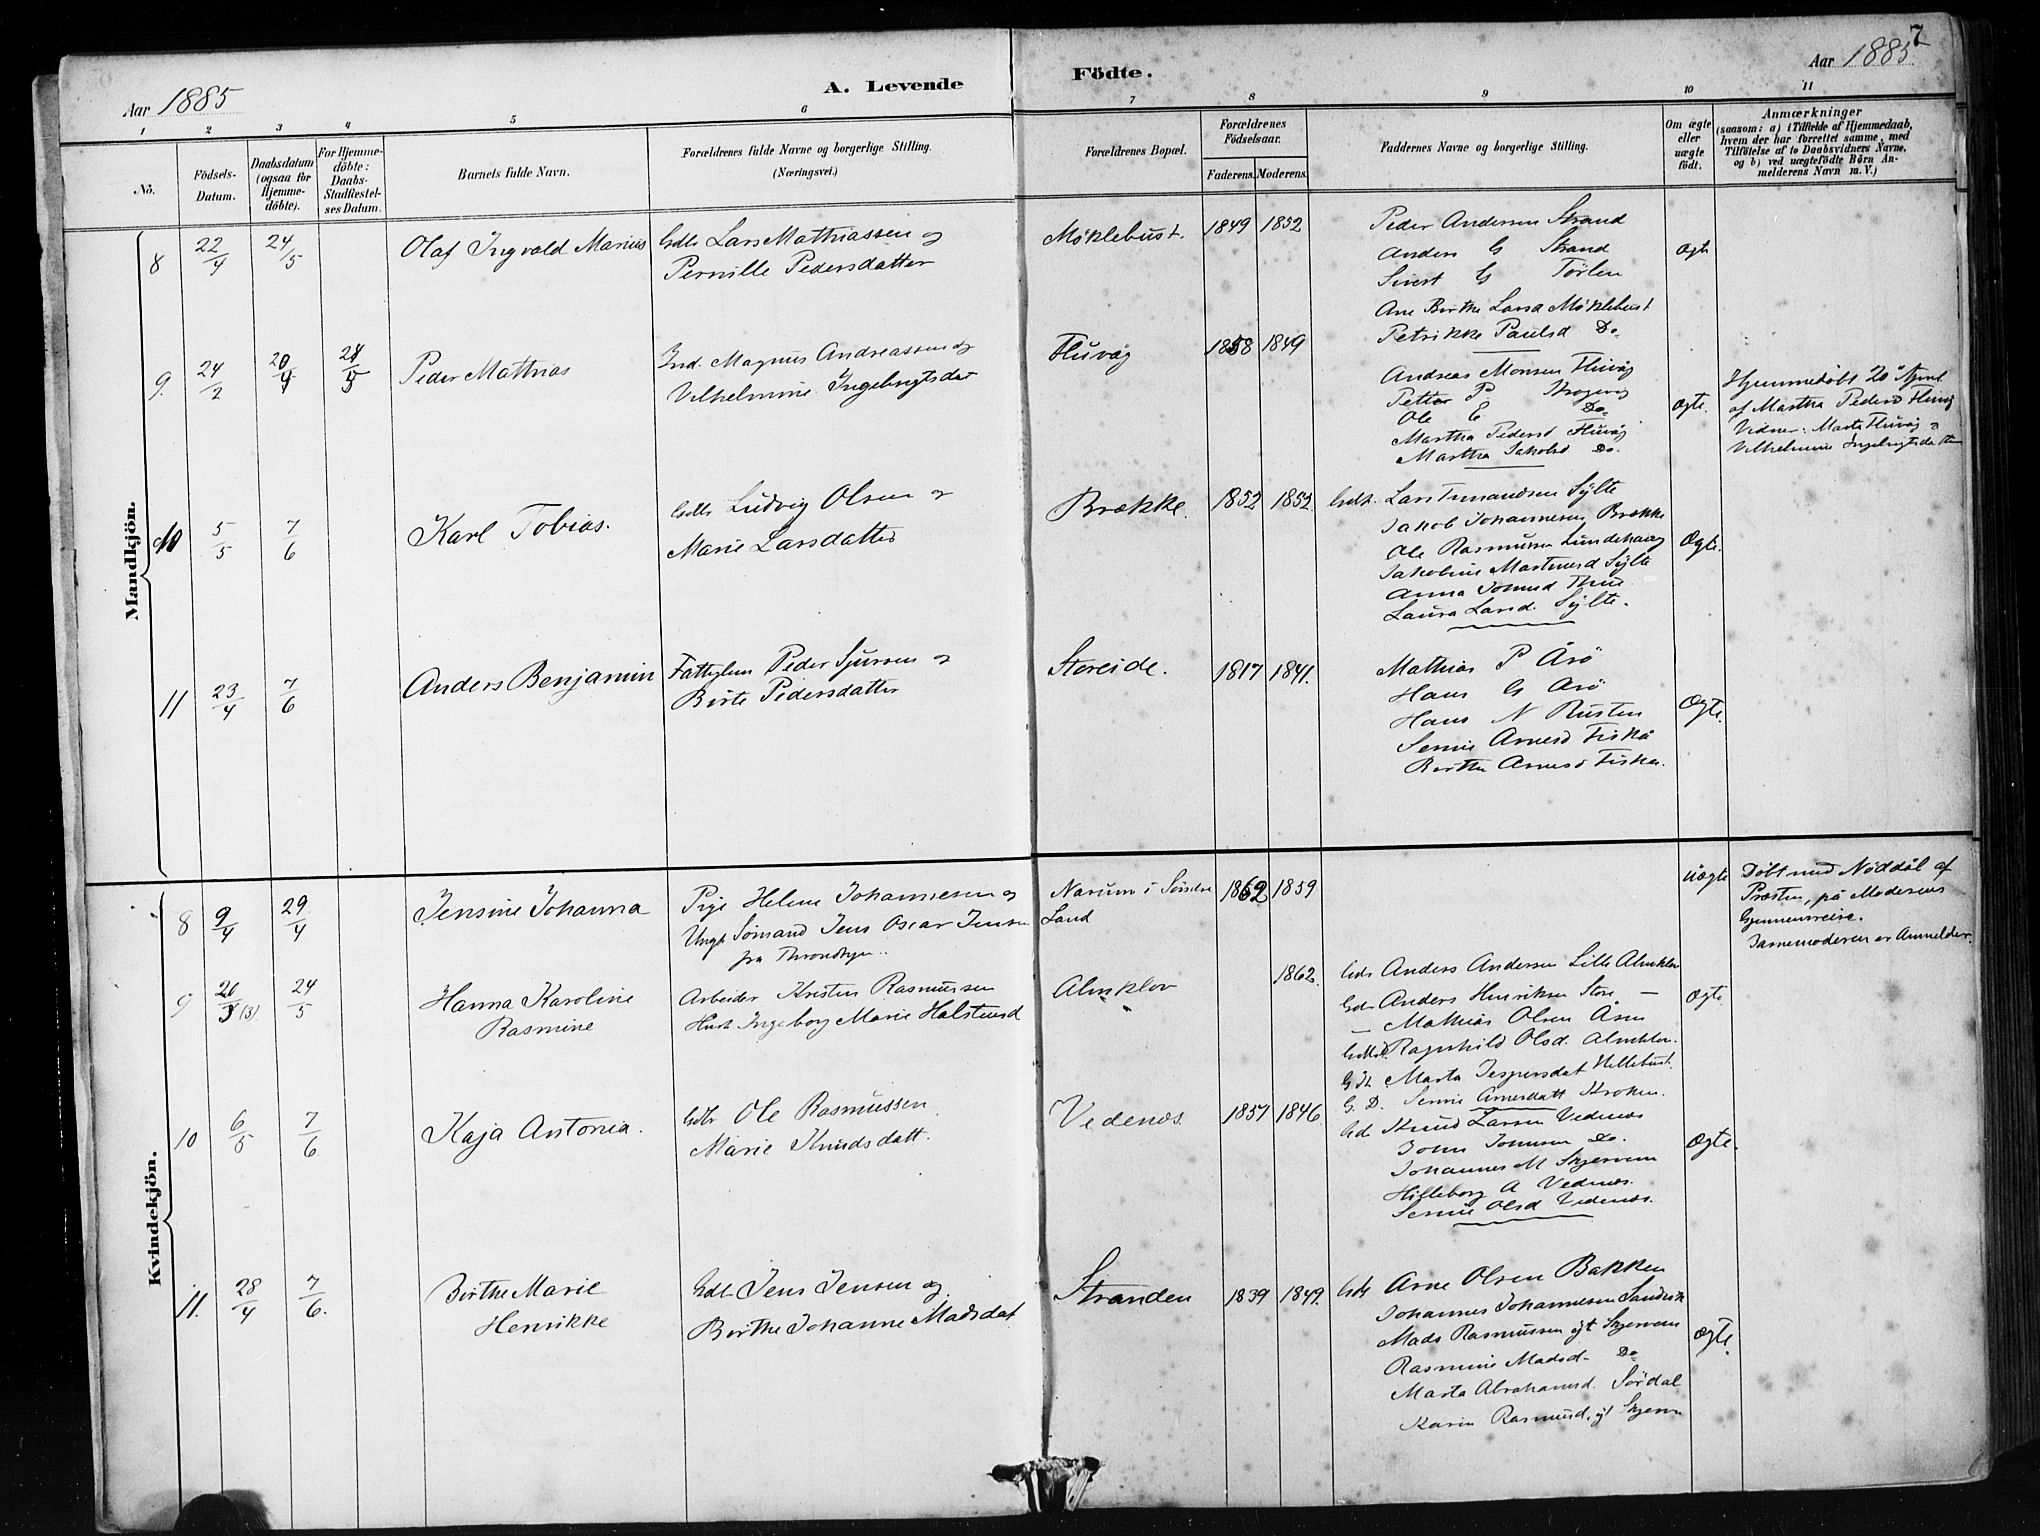 7
Aar 1885
A. Levende
Födte.
Aar 1885
1 2 3 4 5 6 7 8 9 10 11
No.
Födsels-Datum.
Daabsdatum (ogsaa for Hjemme-döbte).
For Hjemme-döbte: Daabs-Stadfæstel-ses Datum.
Barnets fulde Navn.
Forældrenes fulde Navne og borgerlige Stilling.
(Næringsvei.)
Forældrenes Bopæl.
Forældrenes Födselsaar.
Faderens. Moderens.
Faddernes Navne og borgerlige Stilling.
Om ægte eller uægte födt.
Anmærkninger
(saasom: a) i Tilfælde af Hjemmedaab,
hvem der har forrettet samme, med
Tilföielse af to Daabsvidners Navne,
og b) ved uægtefödte Börn An-
melderens Navn m. V.)
Mandkjön.
8 22/4 24/5 Olaf Ingvald Marius
Gdbr Lars Mathiassen og
Pernille Pedersdatter
Möklebust. 1849 1852
Peder Andersen Strand
Anders G Strand
Sivert G
Ane Birthe Larsd Möklebust
Petrikke Paulsd Do
Ægte
9. 24/2 20/4 24/5 Peder Mathias
Ind. Magnus Andreassen og
Vilhelmine Ingebrigtsdat
Fluvåg 1858 1849
Andreas Monsen Fluvåg
Petter P
Ole E Do
Martha Pedersd Fluvåg
Martha Jakobsd Do.
Ægte.
Hjemmedöbt 20 April
af Martha Pedersd Fluvåg
Vidner: Marte Fluvåg og
Vilhelmine Ingebrigtsdatter
10 5/5 7/6 Karl Tobias.
Gdbr Ludvig Olsen og
Marie Larsdatter
Brække 1852 1852.
Lars Sylte
Jakob Johannesen Brække
Ole Rasmussen Lundehaug
Jakobine Martinusd Sylte
Anna
Laura Larsd. Sylte.
Ægte.
11 23/4 7/6 Anders Benjamin
Peder Sjursen og
Birte Pedersdatter
Storeide. 1817 1841.
Mathias P Årö
Hans G Årö
Hans N Rusten
Serine Arnesd Fiskå
Birthe Arnesd Fiskå.
Ægte.
Kvindekjön.
8 9/4 29/4 Jensine Johanna
Pige Helene Johannesen og
Ungk Sömand Jens Oscar Jensen
fra Throndhjem..
i Söndre
Land
1862 1859
uægte
Döbt med Nöddåb af
Præsten, på Moderens
Gjennemreise.
er Anmelder.
9 26/3 (3) 24/5 Hanna Karoline
Rasmine
Arbeider Kristen Rasmussen
Hust Ingeborg Marie Halstensd
Almklov 1862.
Gdr Anders Andersen Lille Almklov
Gdr Anders Henriksen Store —
— Mathias Olsen Åsen
Ragnhild Olsd. Almklov.
Marta Jespersdat Hellebust.
G. D. Serine Arnesdatt Kroken.
Ægte
10 6/5 7/6 Kaja Antonia.
Gdbr Ole Rasmussen
Marie Knudsdatt.
Vedenæs 1857 1846.
Gdr Knud Larsen Vedenæs
John Jonsen Do.
Johannes M Skjervem
Hilleborg A Vedenæs.
Serine Olsd Vedenæs.
Ægte.
11. 28/4 7/6. Birthe Marie
Henrikke
Gdbr Jens Jensen og
Birthe Johanne Madsdat.
Stranden 1839 1849.
Gdr Arne Olsen Bakken
Johannes Johannesen Sandvik
Mads Rasmussen Skjervem
Rasmine Madsd- Do
Marta Abrahamsd. Sördal
Karin Rasmusd,
Ægte.